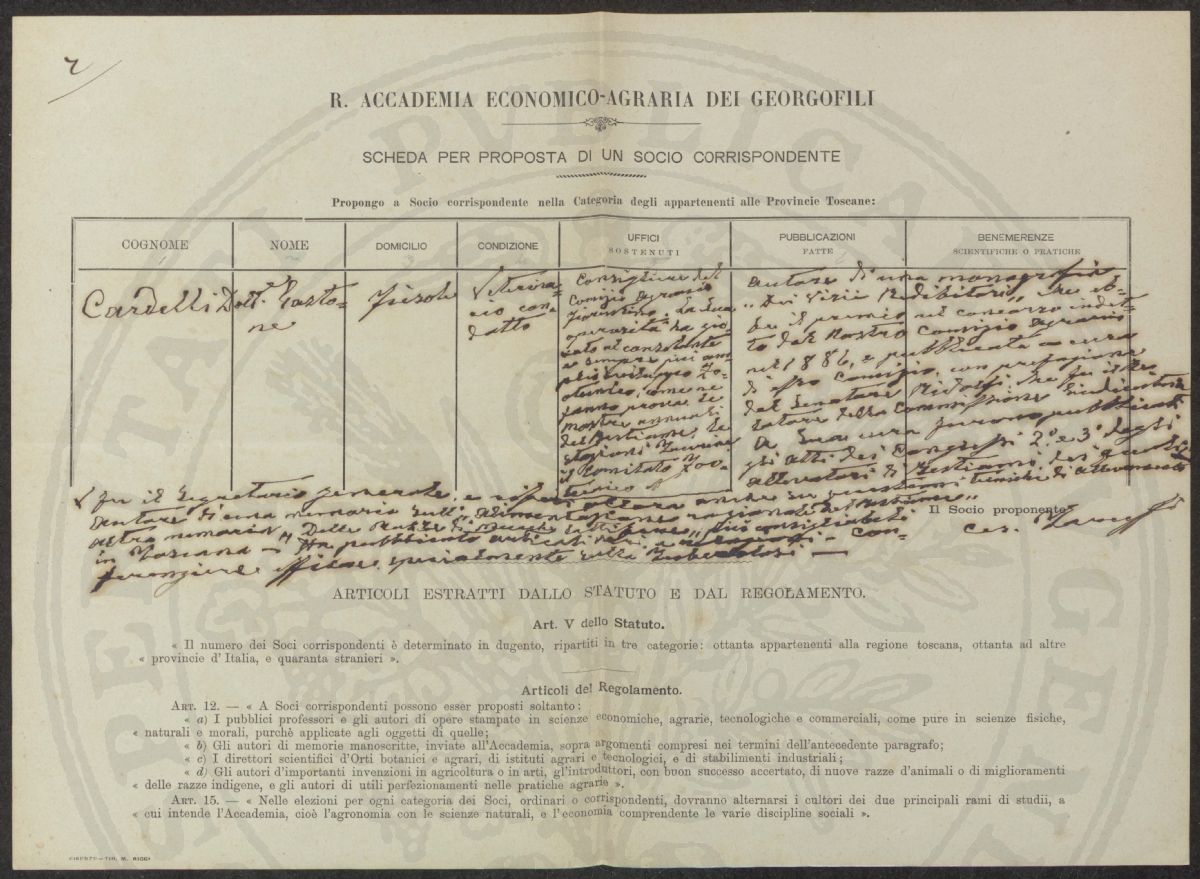 2
R. ACCADEMIA ECONOMICO-AGRARIA DEI GEORGOFILI
SCHEDA PER PROPOSTA DI UN SOCIO CORRISPONDENTE
Propongo a Socio corrispondente nella Categoria degli appartenenti alle Provincie Toscane:
COGNOME
NOME
DOMICILIO
CONDIZIONE
UFFICI
SOSTENUTI
PUBBLICAZIONI
FATTE
BENEMERENZE
SCIENTIFICHE O PRATICHE
Cardelli
Dott. Gasto-
ne
Fiesole
Veterina-
rio con-
dotto
Consigliere del
Comizio Agrario
Fiorentino. La sua
operosità ha gio-
vato al constatante
e sempre più am-
plio sviluppo Zo-
otecnico, come ne
fanno prova le
mostre annuali
del Bestiame, le
stazioni Taurine
il Comitato Zoo-
tecnico
autore di una monografia
"Dei Vizi Redibitori" che eb-
be il premio nel concorso indet-
to dal Nostro Comizio Agrario
nel 1886, e pubblicata a cura
di esso Comizio, con prefazione
del Senatore Ridolfi che fu il Re-
latore della Commissione Giudicatrice
A sua cura furono pubblicati
gli atti dei Congressi 2º e 3º degli
allevatori di Bestiami dei quali
fu il Segretario generale, e
autore di una memoria sull' alimentazione razionale del Bestiame"
altra memoria "Delle Razze di più consigliabili
in Toscana - Ha pubblicato articoli vari con-
ferenziere efficace specialmente sulla Tubercolosi -
Il Socio proponente
ces.
ARTICOLI ESTRATTI DALLO STATUTO E DAL REGOLAMENTO.
Art. V dello Statuto.
« Il numero dei Soci corrispondenti è determinato in dugento, ripartiti in tre categorie: ottanta appartenenti alla regione toscana, ottanta ad altre
« provincie d'Italia, e quaranta stranieri ».
Articoli del Regolamento.
ART. 12. — « A Soci corrispondenti possono esser proposti soltanto:
« a) I pubblici professori e gli autori di opere stampate in scienze economiche, agrarie, tecnologiche e commerciali, come pure in scienze fisiche,
« naturali e morali, purchè applicate agli oggetti di quelle;
« b) Gli autori di memorie manoscritte, inviate all'Accademia, sopra argomenti compresi nei termini dell'antecedente paragrafo;
« c) I direttori scientifici d'Orti botanici e agrari, di istituti agrari e tecnologici, e di stabilimenti industriali;
« d) Gli autori d'importanti invenzioni in agricoltura o in arti, gl'introduttori, con buon successo accertato, di nuove razze d'animali o di miglioramenti
« delle razze indigene, e gli autori di utili perfezionamenti nelle pratiche agrarie ».
ART. 15. — « Nelle elezioni per ogni categoria dei Soci, ordinari o corrispondenti, dovranno alternarsi i cultori dei due principali rami di studii, a
« cui intende l'Accademia, cioè l'agronomia con le scienze naturali, e l'economia comprendente le varie discipline sociali ».
FIRENZE—TIP. M. RICCI